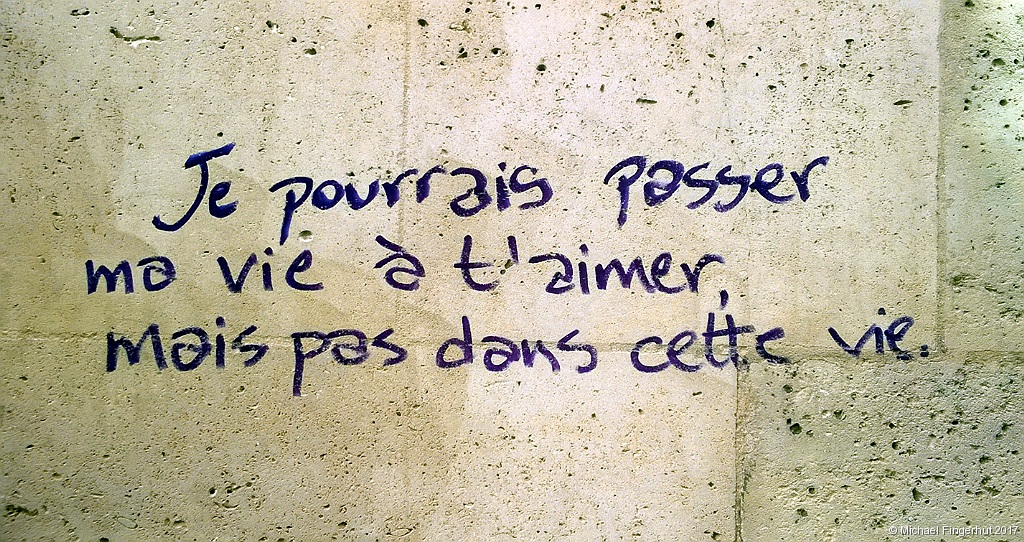 Je pourrais passer
ma vie à t'aimer,
mais pas dans cette vie.
© Michael Fingerhut 2017